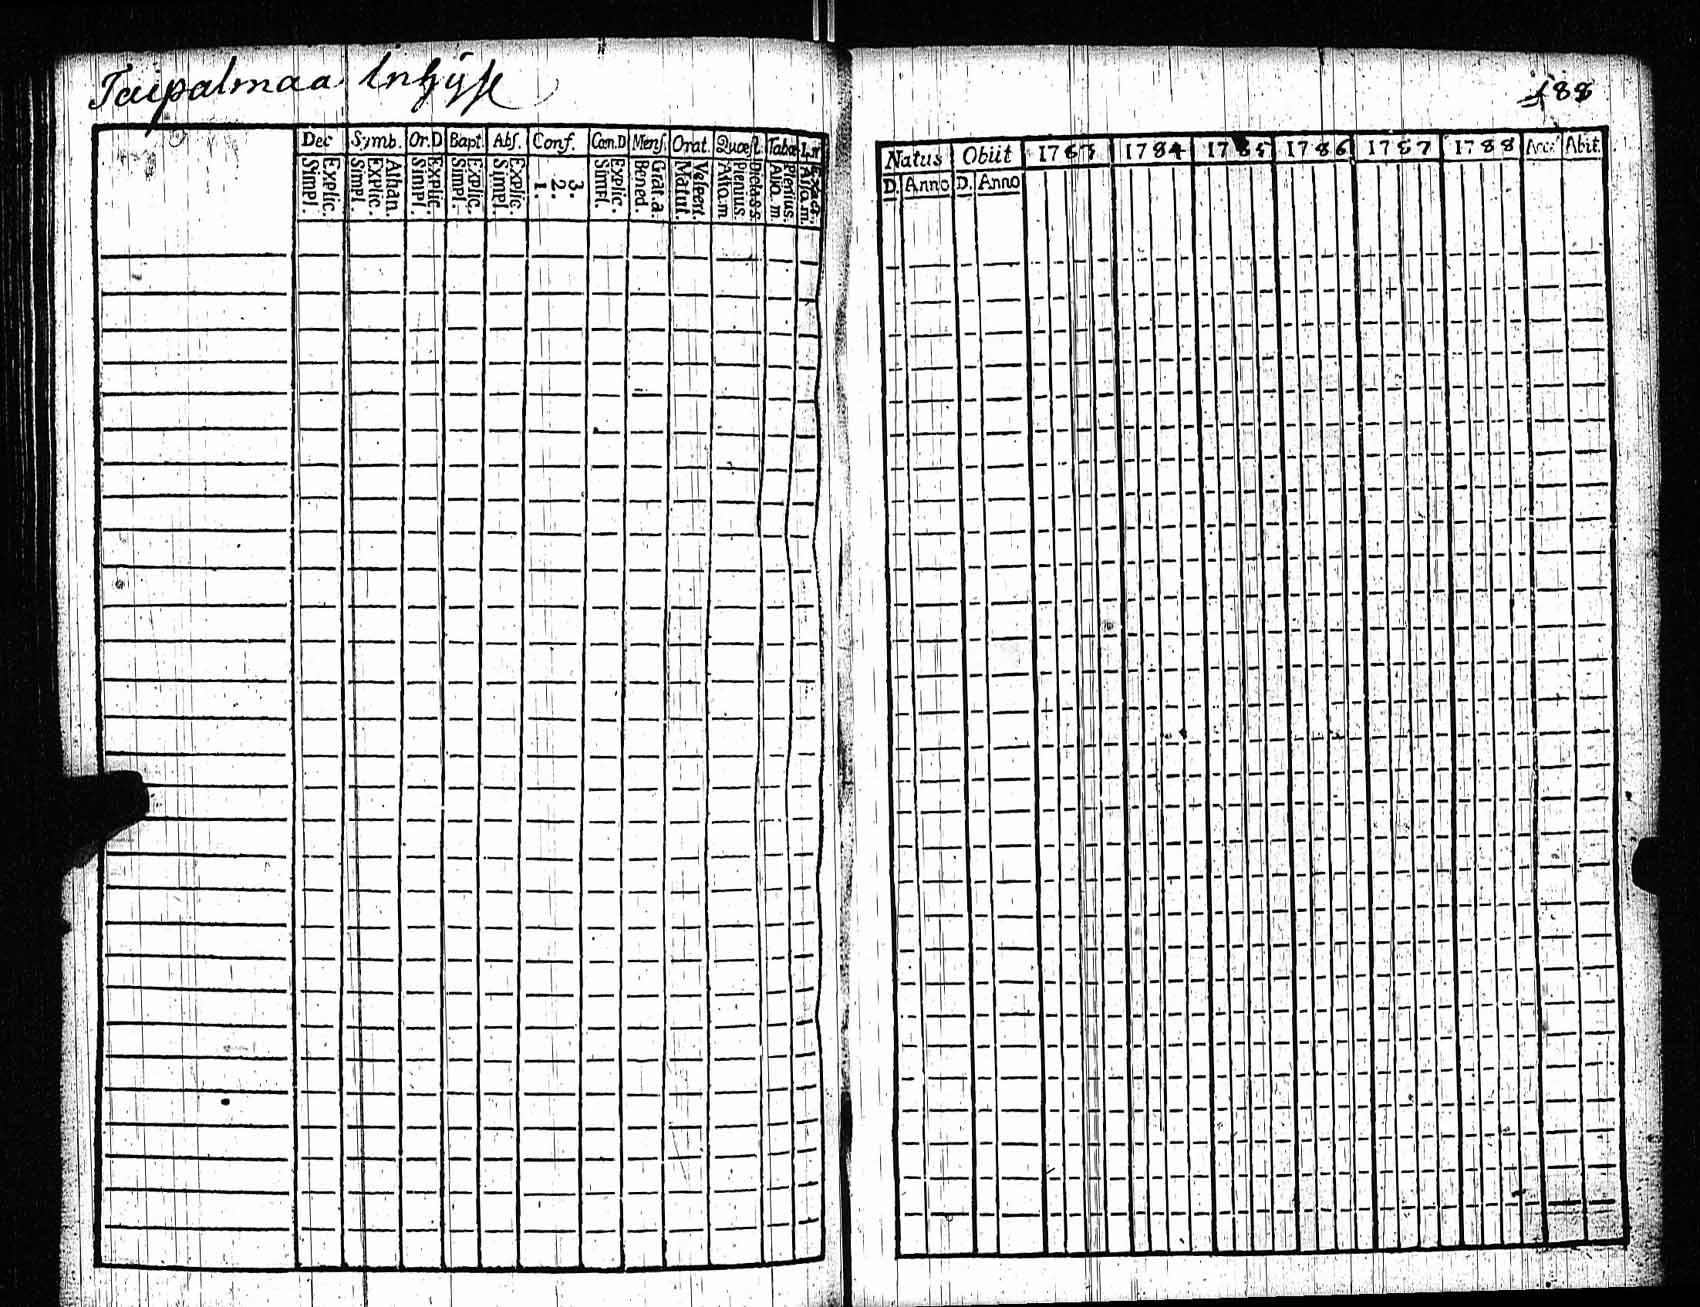 Taipalmaa Inhyse
188
Dec Symb. Or.D Bapt. Abs. Conf. Can.D Mens. Orat. Quæst. Tabæ
Explic. Simpl. Athan. Explic. Simpl. Explic. Simpl. Explic. Simpl. Explic. Simpl. 3. 2. 1. Explic. Simpl. Grat.a. Bened. Vespert. Matut. Dictas.s. Plenius. Alio.m Plenius. Alio.m. Exact. Alio.m.
Natus Obiit 1783 1784 1785 1786 1787 1788 Acc. Abit.
D. Anno D. Anno